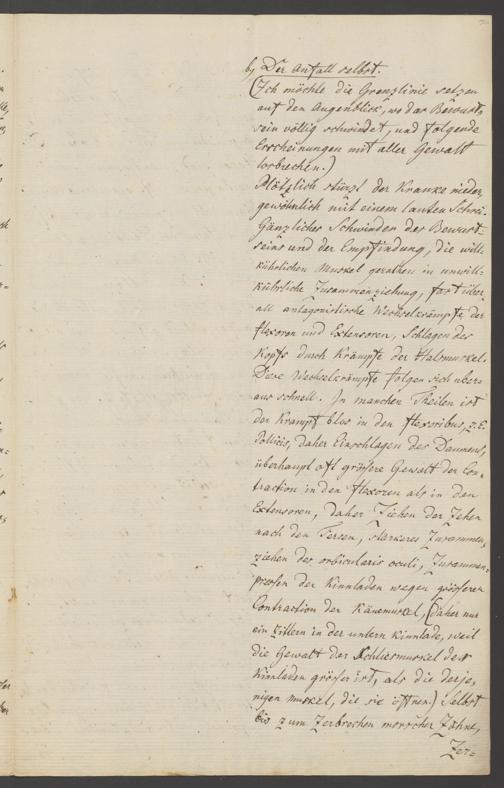 b) Der Anfall selbst.
(Ich möchte die Grenzlinie setzen
auf den Augenblick, wo das Bewust-
sein völlig schwindet, und folgende
Erscheinungen mit aller Gewalt
losbrechen.)
Plötzlich stürzt der Kranke nieder,
gewöhnlich mit einem lauten Schrei.
Gänzliches Schwinden des Bewust-
seins und der Empfindung, die will-
kührlichen Muskel gerathen in unwill-
kührliche Zusammenziehung, fast über-
all antagonistische Wechselkrämpfe der
Flexoren und Extensoren, Schlagen des
Kopfs durch Krämpfe der Halsmuskel.
Diese Wechselkrämpfe folgen sich uber-
aus schnell. In manchen Theilen ist
der Krampf blos in den flexoribus, z.E.
Pollicis, daher Einschlagen des Daumens,
überhaupt oft grössere Gewalt der Con-
traction in den flexoren als in den
Extensoren, daher Ziehen der Zehen
nach den Fersen, stärkeres Zusammen-
ziehen des orbicularis oculi, Zusammen-
pressen der Kinnladen wegen grösserer
Contraction der Käuemuskel, (daher nur
ein zittern in der untern Kinnlade, weil
die Gewalt der Schliesmuskel der
Kinnladen grösser ist, als die derje-
nigen Muskel, die sie öffnen.) Selbst
bis zum Zerbrechen morscher Zähne,
Zer-